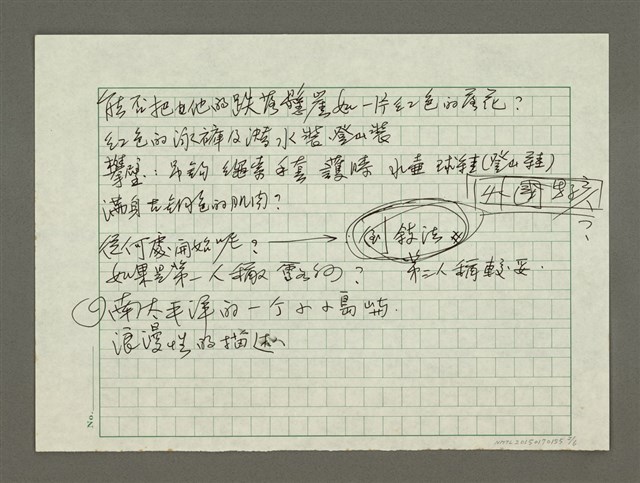 能否把他的跌落壁崖如一片紅色的落花?
紅色的泳褲及潛水裝.登山裝
攀壁:吊鈎 繩索手套 護膝 水壺 球鞋(登山鞋)
滿身古銅色的肌肉?
外國
?
從何處開始呢? → 倒敘法
如果是第一人稱 如何? 第三人稱較妥.
南太平洋的一个小小島嶼.
浪漫性的描述
No.